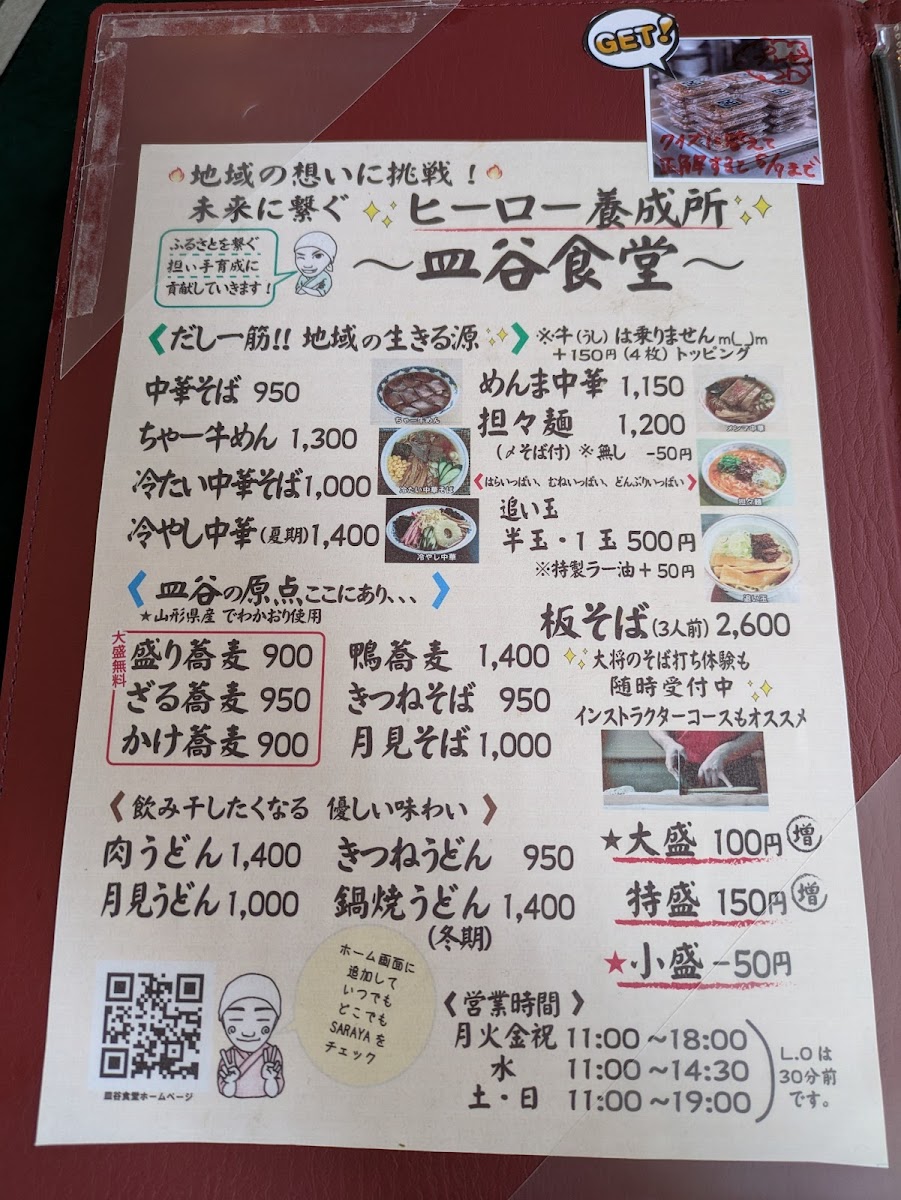 GET!
クイズに答えて
正解すると 8/9まで
🔥地域の想いに挑戦！🔥
未来に繋ぐ ✨ヒーロー養成所✨
～皿谷食堂～
ふるさとを繋ぐ
担い手育成に
貢献していきます！
《だし一筋!! 地域の生きる源✨》
※牛(うし)は乗りませんm(_)m
＋150円(4枚)トッピング
中華そば 950
ちゃー牛めん
ちゃー牛めん 1,300
冷たい中華そば
冷たい中華そば1,000
冷やし中華(夏期)1,400
冷やし中華
めんま中華 1,150
メンマ中華
担々麺 1,200
(〆そば付) ※無し −50円
担々麺
《はらいっぱい、むねいっぱい、どんぶりいっぱい》
追い玉
半玉・１玉 500円
※特製ラー油＋50円
追い玉
《皿谷の原点ここにあり､､､》
★山形県産 でわかおり使用
大盛無料
盛り蕎麦 900
ざる蕎麦 950
かけ蕎麦 900
鴨蕎麦 1,400
きつねそば 950
月見そば1,000
板そば(3人前) 2,600
✨大将のそば打ち体験も
随時受付中✨
インストラクターコースもオススメ
《飲み干したくなる 優しい味わい》
肉うどん1,400
月見うどん1,000
きつねうどん 950
鍋焼うどん 1,400
(冬期)
★大盛 100円増
特盛 150円増
★小盛 −50円
ホーム画面に
追加して
いつでも
どこでも
SARAYAを
チェック
皿谷食堂ホームページ
《営業時間》
月火金祝 11:00～18:00
水 11:00～14:30
土・日 11:00～19:00
L.Oは
30分前
です。